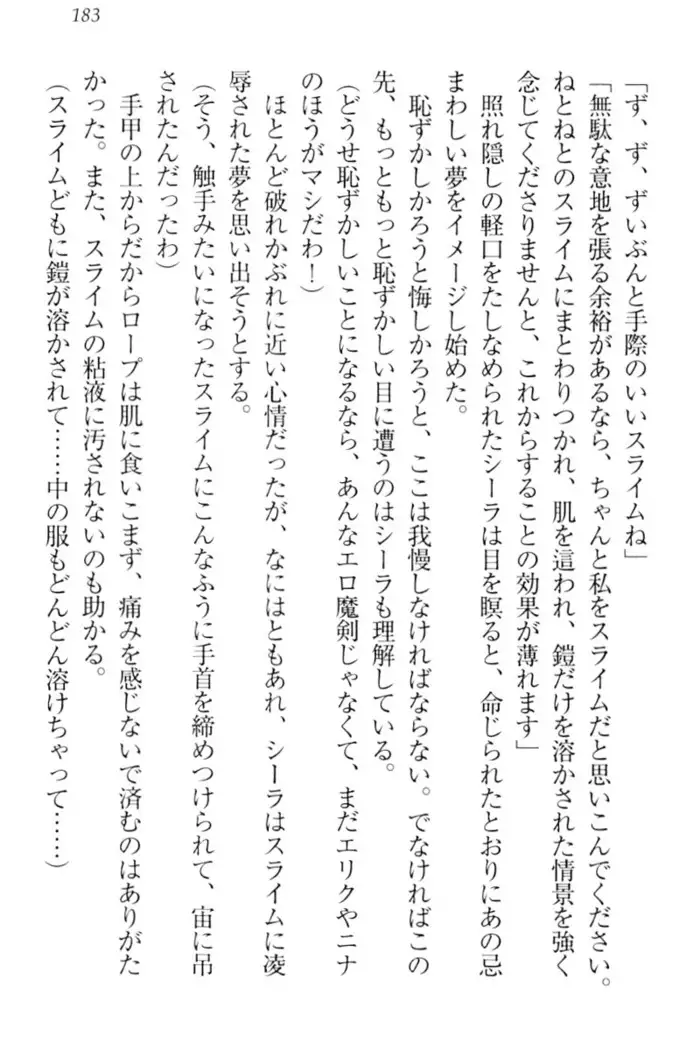 183
「ず、ず、ずいぶんと手際のいいスライムね」
「無駄な意地を張る余裕があるなら、ちゃんと私をスライムだと思いこんでください。
ねとねとのスライムにまとわりつかれ、肌を這われ、鎧だけを溶かされた情景を強く
念じてくださりませんと、これからすることの効果が薄れます」
　照れ隠しの軽口をたしなめられたシーラは目を瞑ると、命じられたとおりにあの忌
まわしい夢をイメージし始めた。
　恥ずかしかろうと悔しかろうと、ここは我慢しなければならない。でなければこの
先、もっともっと恥ずかしい目に遭うのはシーラも理解している。
（どうせ恥ずかしいことになるなら、あんなエロ魔剣じゃなくて、まだエリクやニナ
のほうがマシだわ！）
　ほとんど破れかぶれに近い心情だったが、なにはともあれ、シーラはスライムに凌
辱された夢を思い出そうとする。
（そう、触手みたいになったスライムにこんなふうに手首を締めつけられて、宙に吊
されたんだったわ）
　手甲の上からだからロープは肌に食いこまず、痛みを感じないで済むのはありがた
かった。また、スライムの粘液に汚されないのも助かる。
（スライムどもに鎧が溶かされて……中の服もどんどん溶けちゃって……）